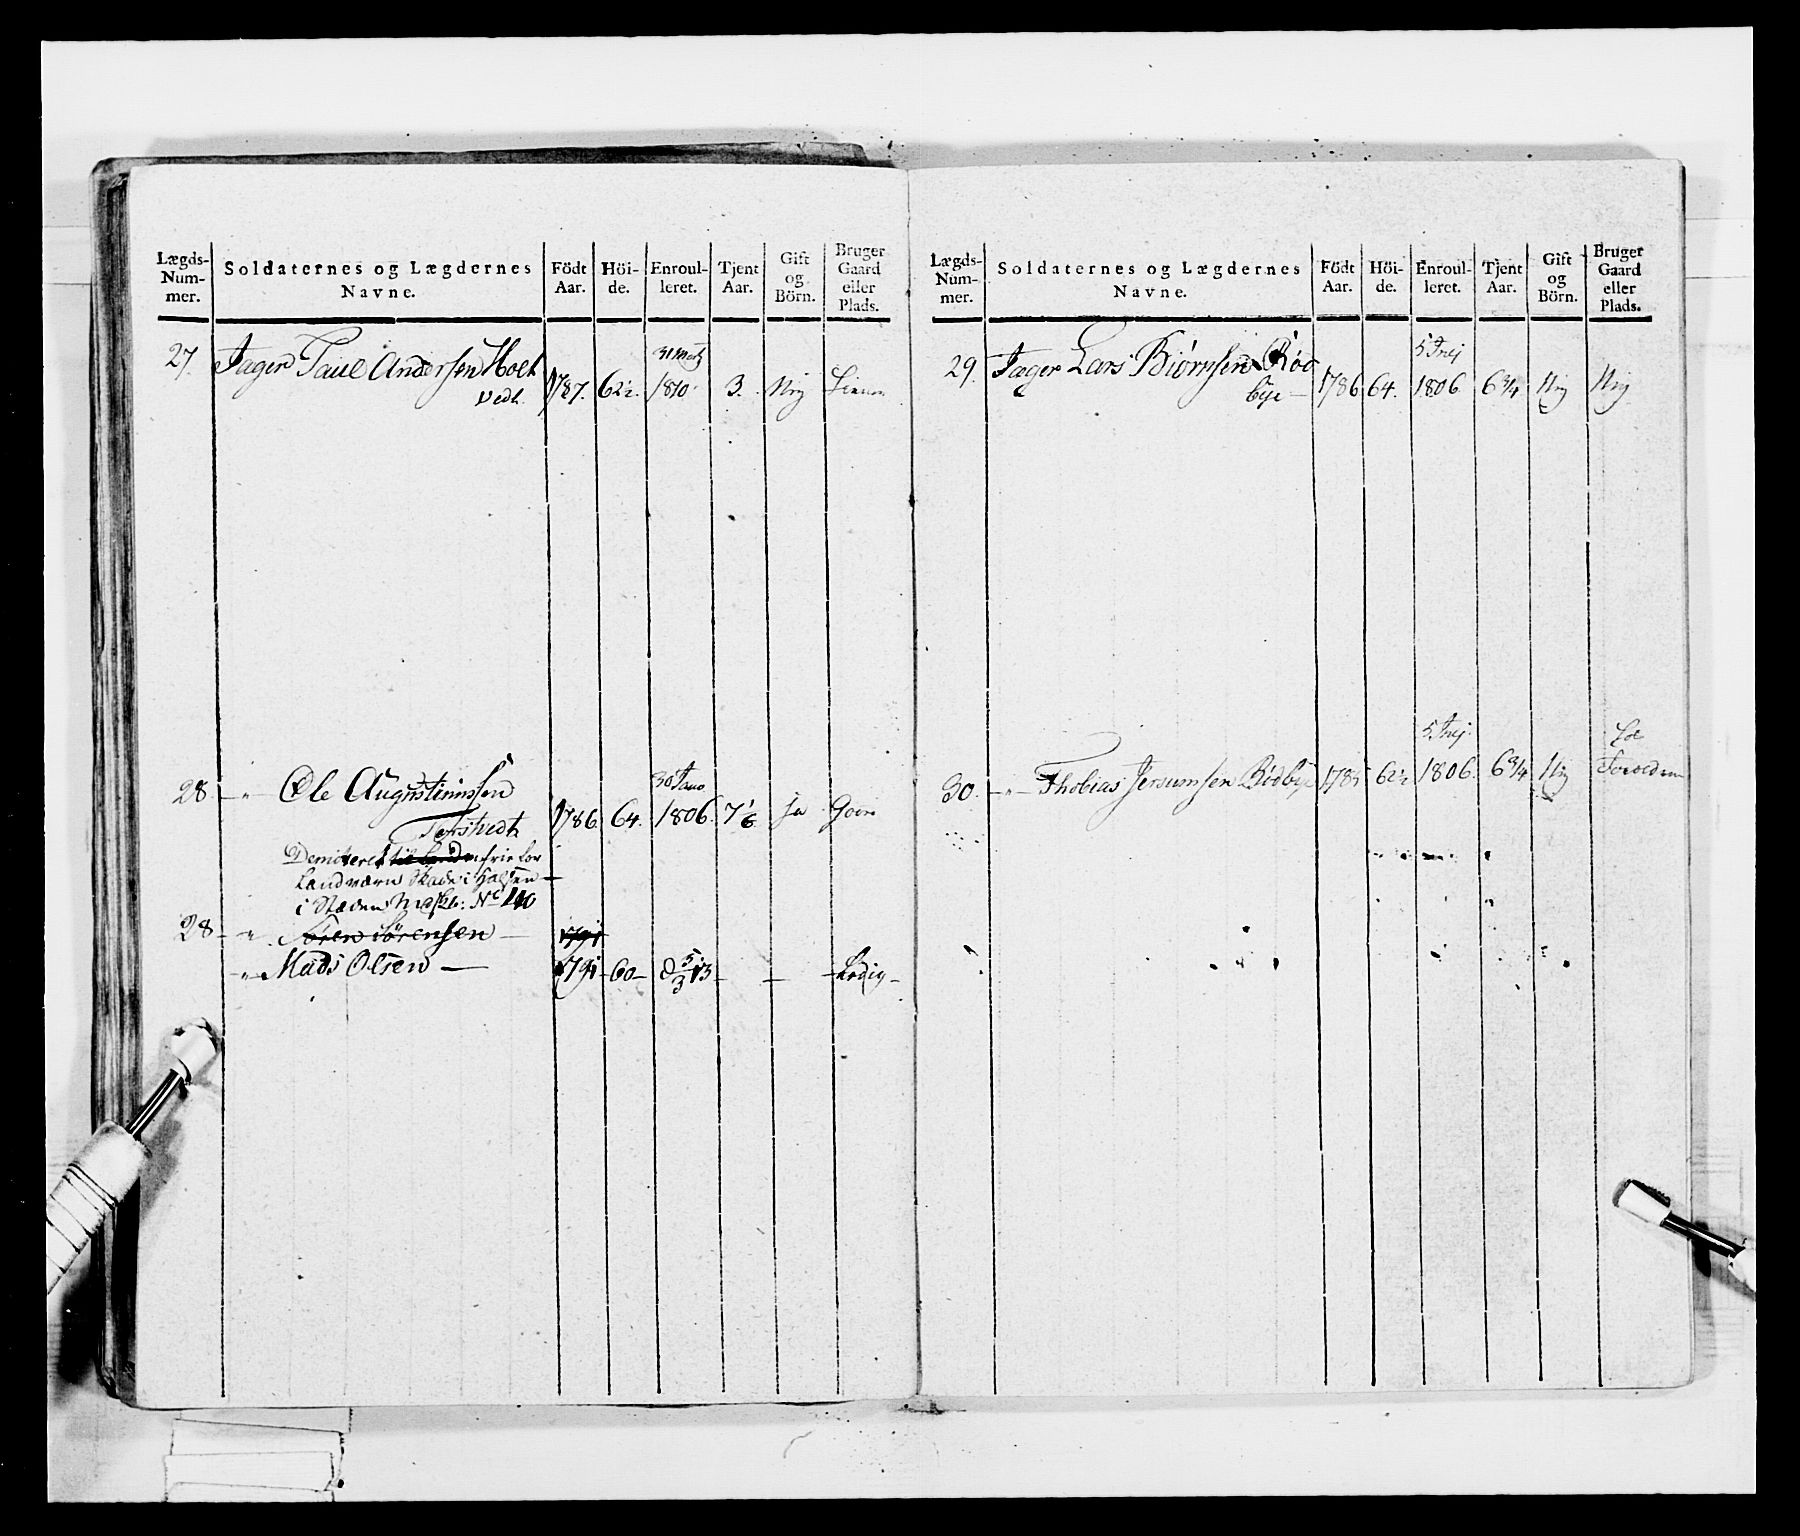 Lægds-Num-mer. Soldaternes og Lægdernes Navne. Födt Aar. Höi-de. Enroul-leret. Tjent Aar. Gift og Börn. Bruger Gaard eller Plads.
31 Martz
27. Jager Paul Andersen Holt
vedt. 1787. 62½. 1810. 3. Nej
28 - " - Ole Augustinussen
30 Janv
Terstvedt 1786. 64. 1806. 7 1/6 ja
Demiteret til Land
Landværn i
i Stæden Mads Ols: No 110
28 - " Sören Sörensen - 1791
- " - Mads Olsen - 1791 - 60 - d 5/3 13 - - - Ledig -
Lægds-Num-mer. Soldaternes og Lægdernes Navne. Födt Aar. Höi-de. Enroul-leret. Tjent Aar. Gift og Börn. Bruger Gaard eller Plads.
29. Jager Lars Biörnsen Röd
bye - 1786 64. 1806 6¾ Nej Nej
30. - " - Thobias Jersumsen Rödbye 1785 62½ 1806. 6¾ Nej